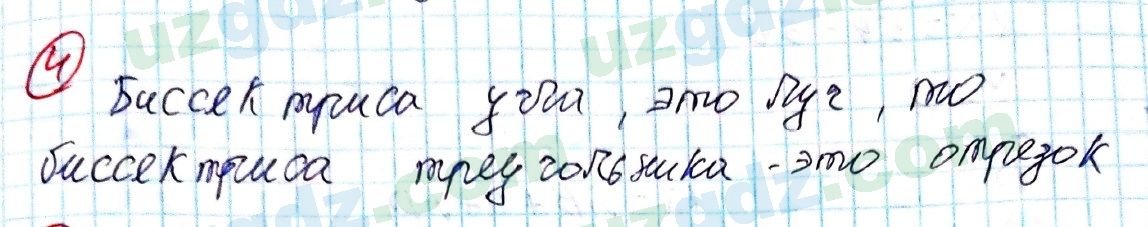 4
Биссектриса угла, это луч, то
биссектриса треугольника - это отрезок
uzgdz.com